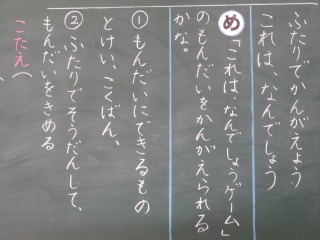 ふたりでかんがえよう
これは、なんでしょう
め「これは、なんでしょうゲーム」
のもんだいをかんがえられる
かな。
①もんだいにできるもの
とけい、こくばん、
②ふたりでそうだんして、
もんだいをきめる
こたえ(